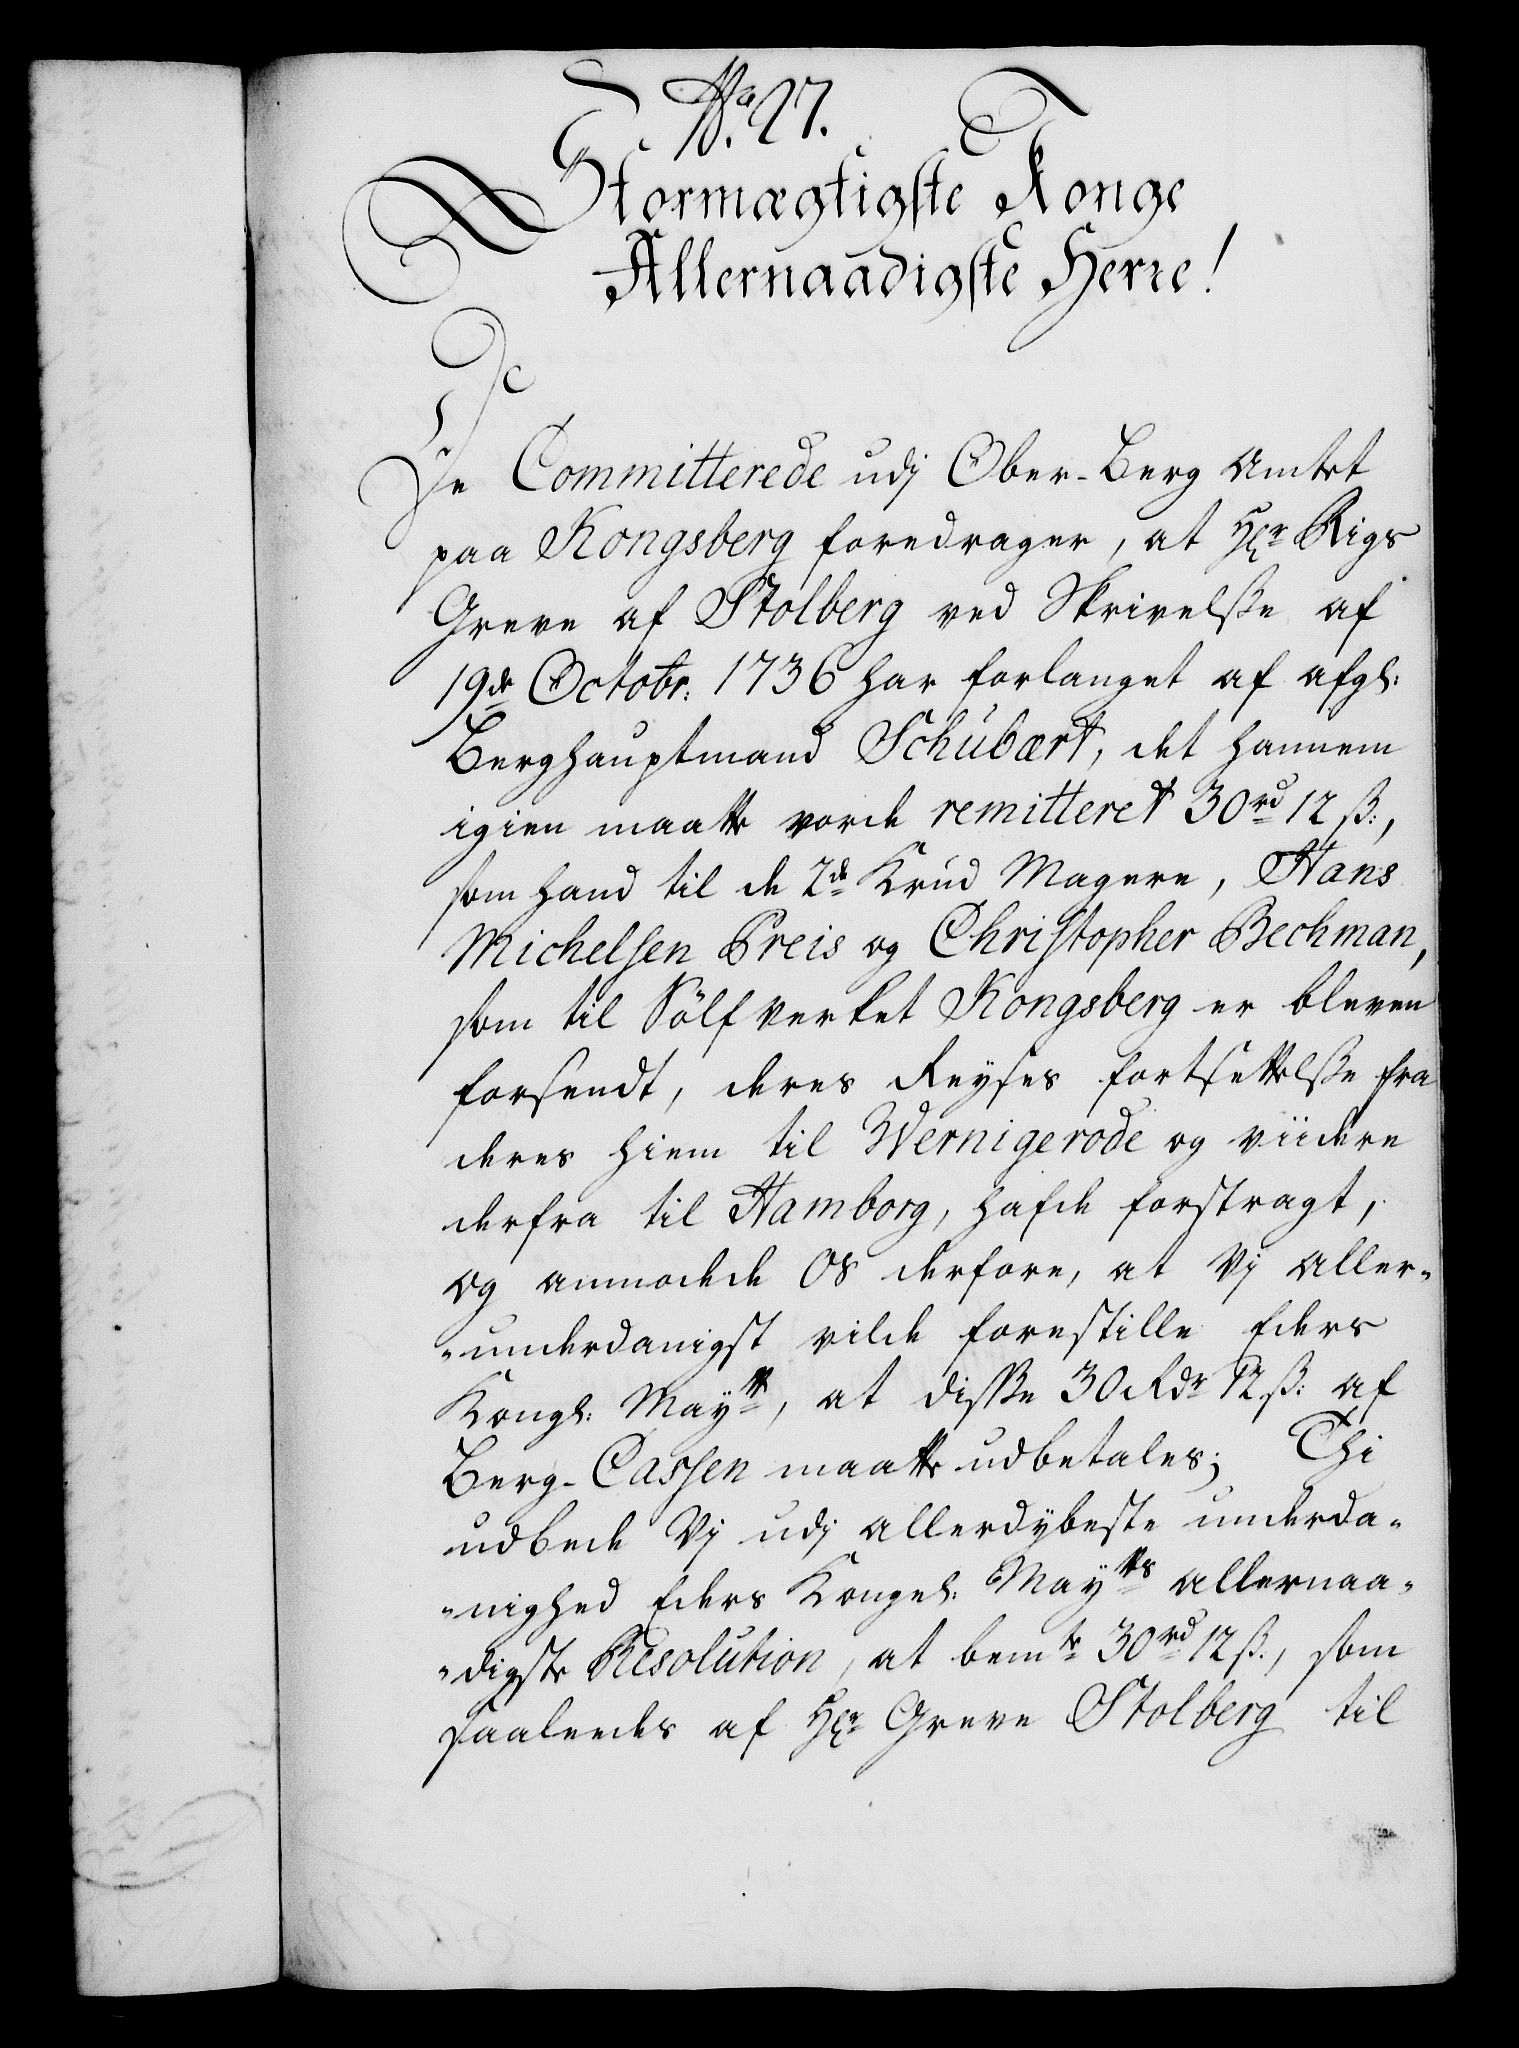 No. 27.
Stormægtigste Konge
Allernaadigste Herre!
De Committerede udj Ober-Berg Amtet
paa Kongsberg foredrager, at Hr Rigs
Greve af Stolberg ved Skrivelße af
19de Octobr: 1736 har forlanget af afgl:
Berghauptmand Schubært, det hannem
igien maatte vorde remitteret 30rd 12 ß:,
som hand til de 2de Krud Magere, Hans
Michelsen Preis og Christopher Bechman,
som til Sölfverket Kongsberg er bleven
forsendt, deres Reyses fortsettelße fra
deres hiem til Wernigerode og viidere
derfra til Hamborg, hafde forstragt,
og anmodede Os derfore, at Vj aller-
-underdanigst vilde forestille Eders
Kongl: Maytt, at disse 30 Rdr 12 ß: af
Berg-Cassen maatte udbetales; Thi
udbede Vj udj allerdybeste underda-
-nighed Eders Kongel: Maytts allernaa-
-digste Resolution, at bemte 30rd 12 ß., som
saaledes af Hr Greve Stolberg til